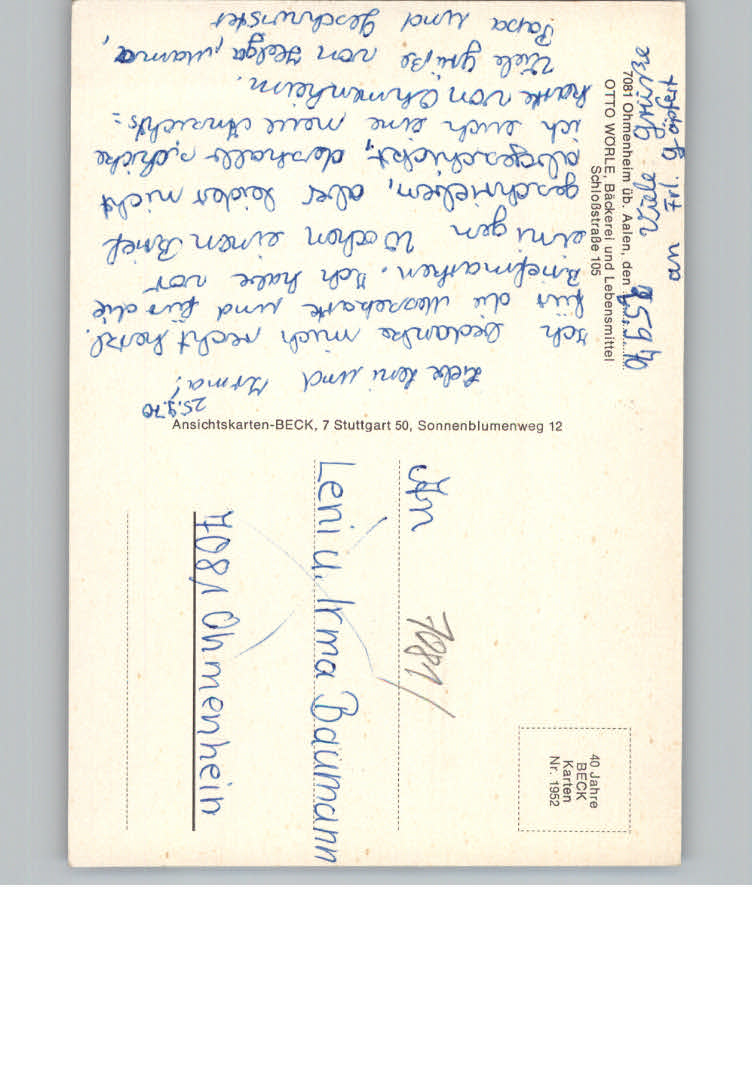 25.9.70
Liebe Leni und Irma!
Ich bedanke mich recht herzl.
für die Messekarte und für die
Briefmarken. Ich habe vor
einigen Wochen einen Brief
geschrieben, aber leider nicht
abgeschickt, deshalb schicke
ich euch eine neue Ansichts=
karte von Ohmenheim.
Viele Grüße von Helga, Mama,
Papa und Geschwister
Viele Grüße
an Frl.
7081 Ohmenheim üb. Aalen, den
OTTO WÖRLE, Bäckerei und Lebensmittel
Schloßstraße 105
Ansichtskarten-BECK, 7 Stuttgart 50, Sonnenblumenweg 12
40 Jahre
BECK
Karten
Nr. 1952
7081/
An
Leni u. Irma Baumann
7081 Ohmenhein